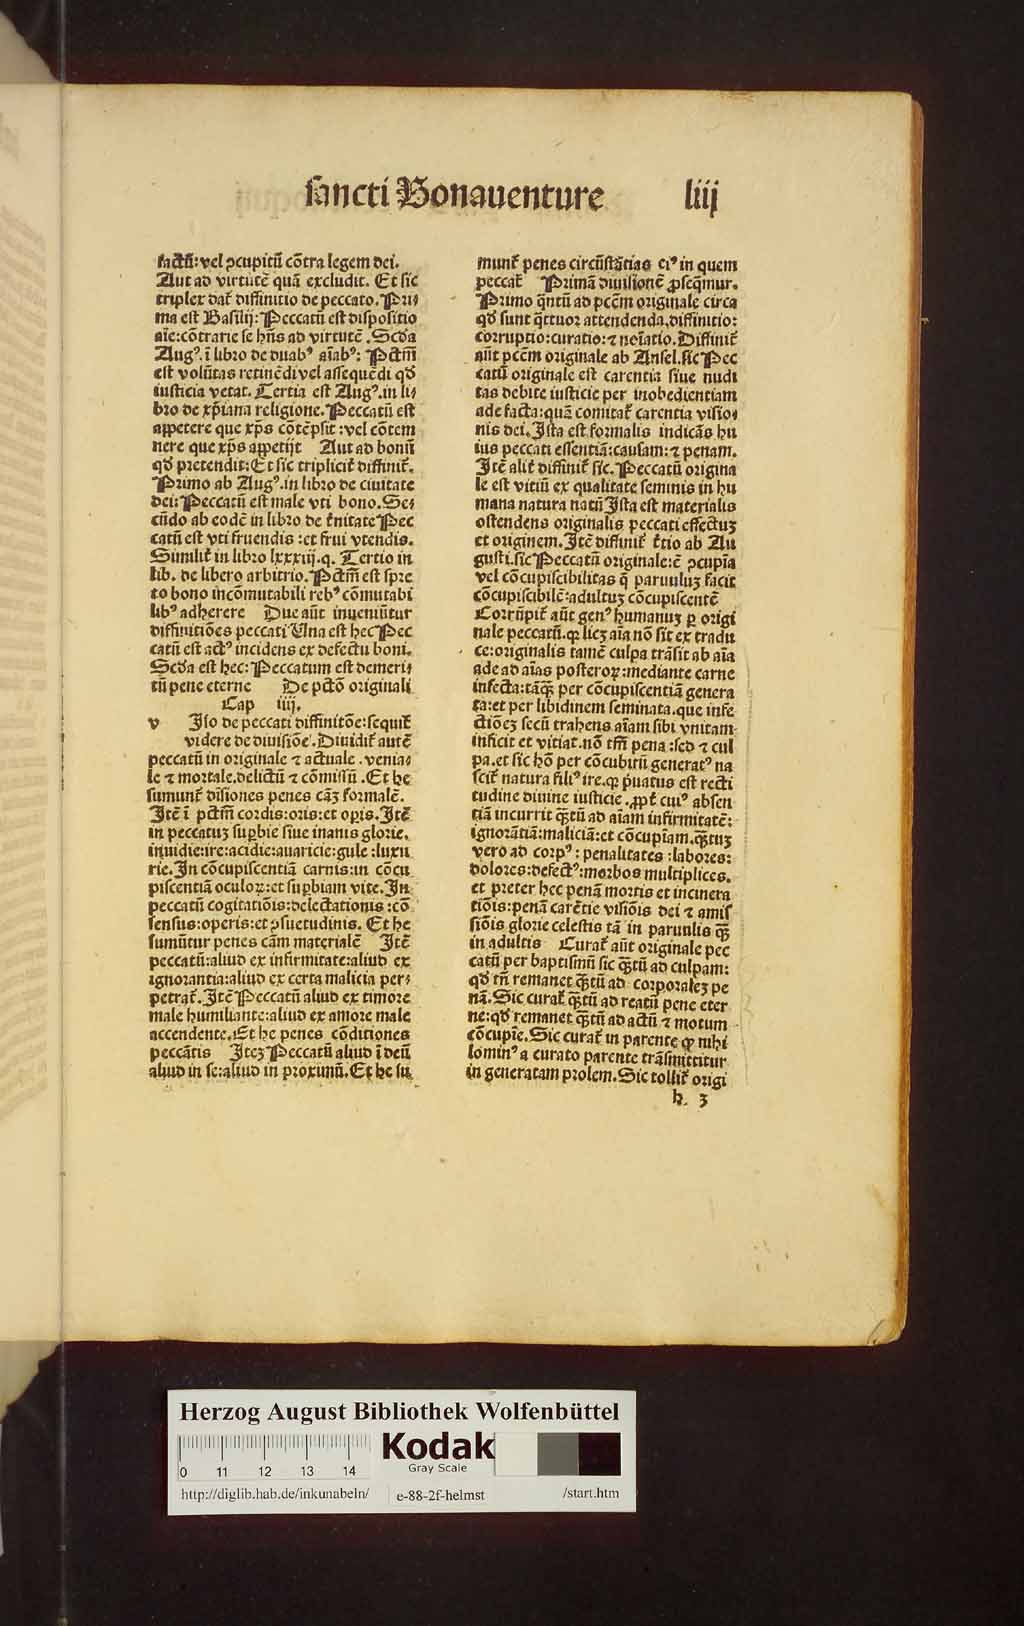 sancti Bonauenture liij
factū: vel ꝯcupitū cōtra legem dei.
Aut ad virtutē quā excludit. Et sic
triplex dat᷑ diffinitio de peccato. Pri⸗
ma est Basilij: Peccatū est dispositio
aīe: cōtrarie se hn̄s ad virtutē. Scd̄a
Augꝰ. ī libro de duabꝰ aīabꝰ: Pctm̄
est volūtas retinēdi vel assequēdi qd̄
iusticia vetat. Tertia est Augꝰ. in li⸗
bro de xp̄iana religione. Peccatū est
appetere que xp̄s cōtēpsit: vel cōtem
nere que xp̄s appetijt Aut ad bonū
qd̄ pretendit: Et sic triplicit᷑ diffinit᷑.
Primo ab Augꝰ. in libro de ciuitate
dei: Peccatū est male vti bono. Se⸗
cūdo ab eodē in libro de t᷑nitate Pec
catū est vti fruendis: et frui vtendis.
Similit᷑ in libro lxxxiij. q. Tertio in
lib. de libero arbitrio. Pctm̄ est spre
to bono incōmutabili rebꝰ cōmutabi
libꝰ adherere Due aūt inueniūtur
diffinitiōes peccati Una est hec Pec
catū est actꝰ incidens ex defectu boni.
Scd̄a est hec: Peccatum est demeri⸗
tū pene eterne De pctō originali
Cap iiij.
v Iso de peccati diffinitōe: sequit᷑
videre de diuisiōe. Diuidit᷑ autē
peccatū in originale ⁊ actuale. venia⸗
le ⁊ mortale. delictū ⁊ cōmissū. Et he
sumunt᷑ diīsiones penes cāꝫ formalē.
Itē ī pctm̄ cordis: oris: et oꝑis. Itē
in peccatuꝫ suꝑbie siue inanis glorie.
inuidie: ire: acidie: auaricie: gule: luxu
rie. In cōcupiscentiā carnis: in cōcu
piscentiā oculoꝝ: et suꝑbiam vite. In
peccatū cogitatiōis: delectationis: cō
sensus: operis: et ꝯsuetudinis. Et he
sumūtur penes cām materialē Itē
peccatū: aliud ex infirmitate: aliud ex
ignorantia: aliud ex certa malicia per⸗
petrat᷑. Itē Peccatū aliud ex timore
male humiliante: aliud ex amore male
accendente. Et he penes cōditiones
peccātis Iteꝫ Peccatū aliud ī deū
aliud in se: aliud in proximū. Et he su
munt᷑ penes circūstātias eiꝰ in quem
peccat᷑ Primā diuisionē ꝓseqmur.
Primo q̄ntū ad pcc̄m originale circa
qd̄ sunt q̄ttuor attendenda. diffinitio:
corruptio: curatio: ⁊ neīatio. Diffinit᷑
aūt pcc̄m originale ab Ansel. sic Pec
catū originale est carentia siue nudi
tas debite iusticie per inobedientiam
ade facta: quā comitat᷑ carentia visio⸗
nis dei. Ista est formalis indicās hu
ius peccati essentiā: causam: ⁊ penam.
Itē alit᷑ diffinit᷑ sic. Peccatū origina
le est vitiū ex qualitate seminis in hu
mana natura natū Ista est materialis
ostendens originalis peccati effectuꝫ
et originem. Itē diffinit᷑ t᷑tio ab Au
gusti. sic Peccatū originale: ē ꝯcupīa
vel cōcupiscibilitas q̄ paruuluꝫ facit
cōcupiscibilē: adultuꝫ cōcupiscentē
Corrūpit᷑ aūt genꝰ humanuꝫ ꝑ origi
nale peccatū. qꝛ licꝫ aīa nō sit ex tradu
ce: originalis tamē culpa trāsit ab aīa
ade ad aīas posteroꝝ: mediante carne
infecta: tāꝙ̄ per cōcupiscentiā genera
ta: et per libidinem seminata. que infe
ctiōeꝫ secū trahens aīam sibi vnitam
inficit et vitiat. nō tm̄ pena: sed ⁊ cul
pa. et sic hō per cōcubitū generatꝰ na
scit᷑ natura filiꝰ ire. qꝛ p̄uatus est recti
tudine diuine iusticie. ꝓpt᷑ cuiꝰ absen
tiā incurrit ꝙ̄tū ad aīam infirmitatē:
ignorātiā: maliciā: et cōcupīam. ꝙ̄tuꝫ
vero ad corpꝰ: penalitates: labores:
dolores: defectꝰ: morbos multiplices.
et preter hec penā mortis et incinera
tiōis: penā carētie visiōis dei ⁊ amis
siōis glorie celestis tā in paruulis ꝙ̄
in adultis Curat᷑ aūt originale pec
catū per baptismū sic ꝙ̄tū ad culpam:
qd̄ tn̄ remanet ꝙ̄tū ad corporaleꝫ pe
nā. Sic curat᷑ ꝙ̄tū ad reatū pene eter
ne: qd̄ remanet ꝙ̄tū ad actū ⁊ motum
cōcupīe. Sic curat᷑ in parente ꝙ nihi
lominꝰ a curato parente trāsmittitur
in generatam prolem. Sic tollit᷑ origi
h. 3
Herzog August Bibliothek Wolfenbüttel
Kodak
Gray Scale
0 11 12 13 14
http://diglib.hab.de/inkunabeln/ e-88-2f-helmst /start.htm